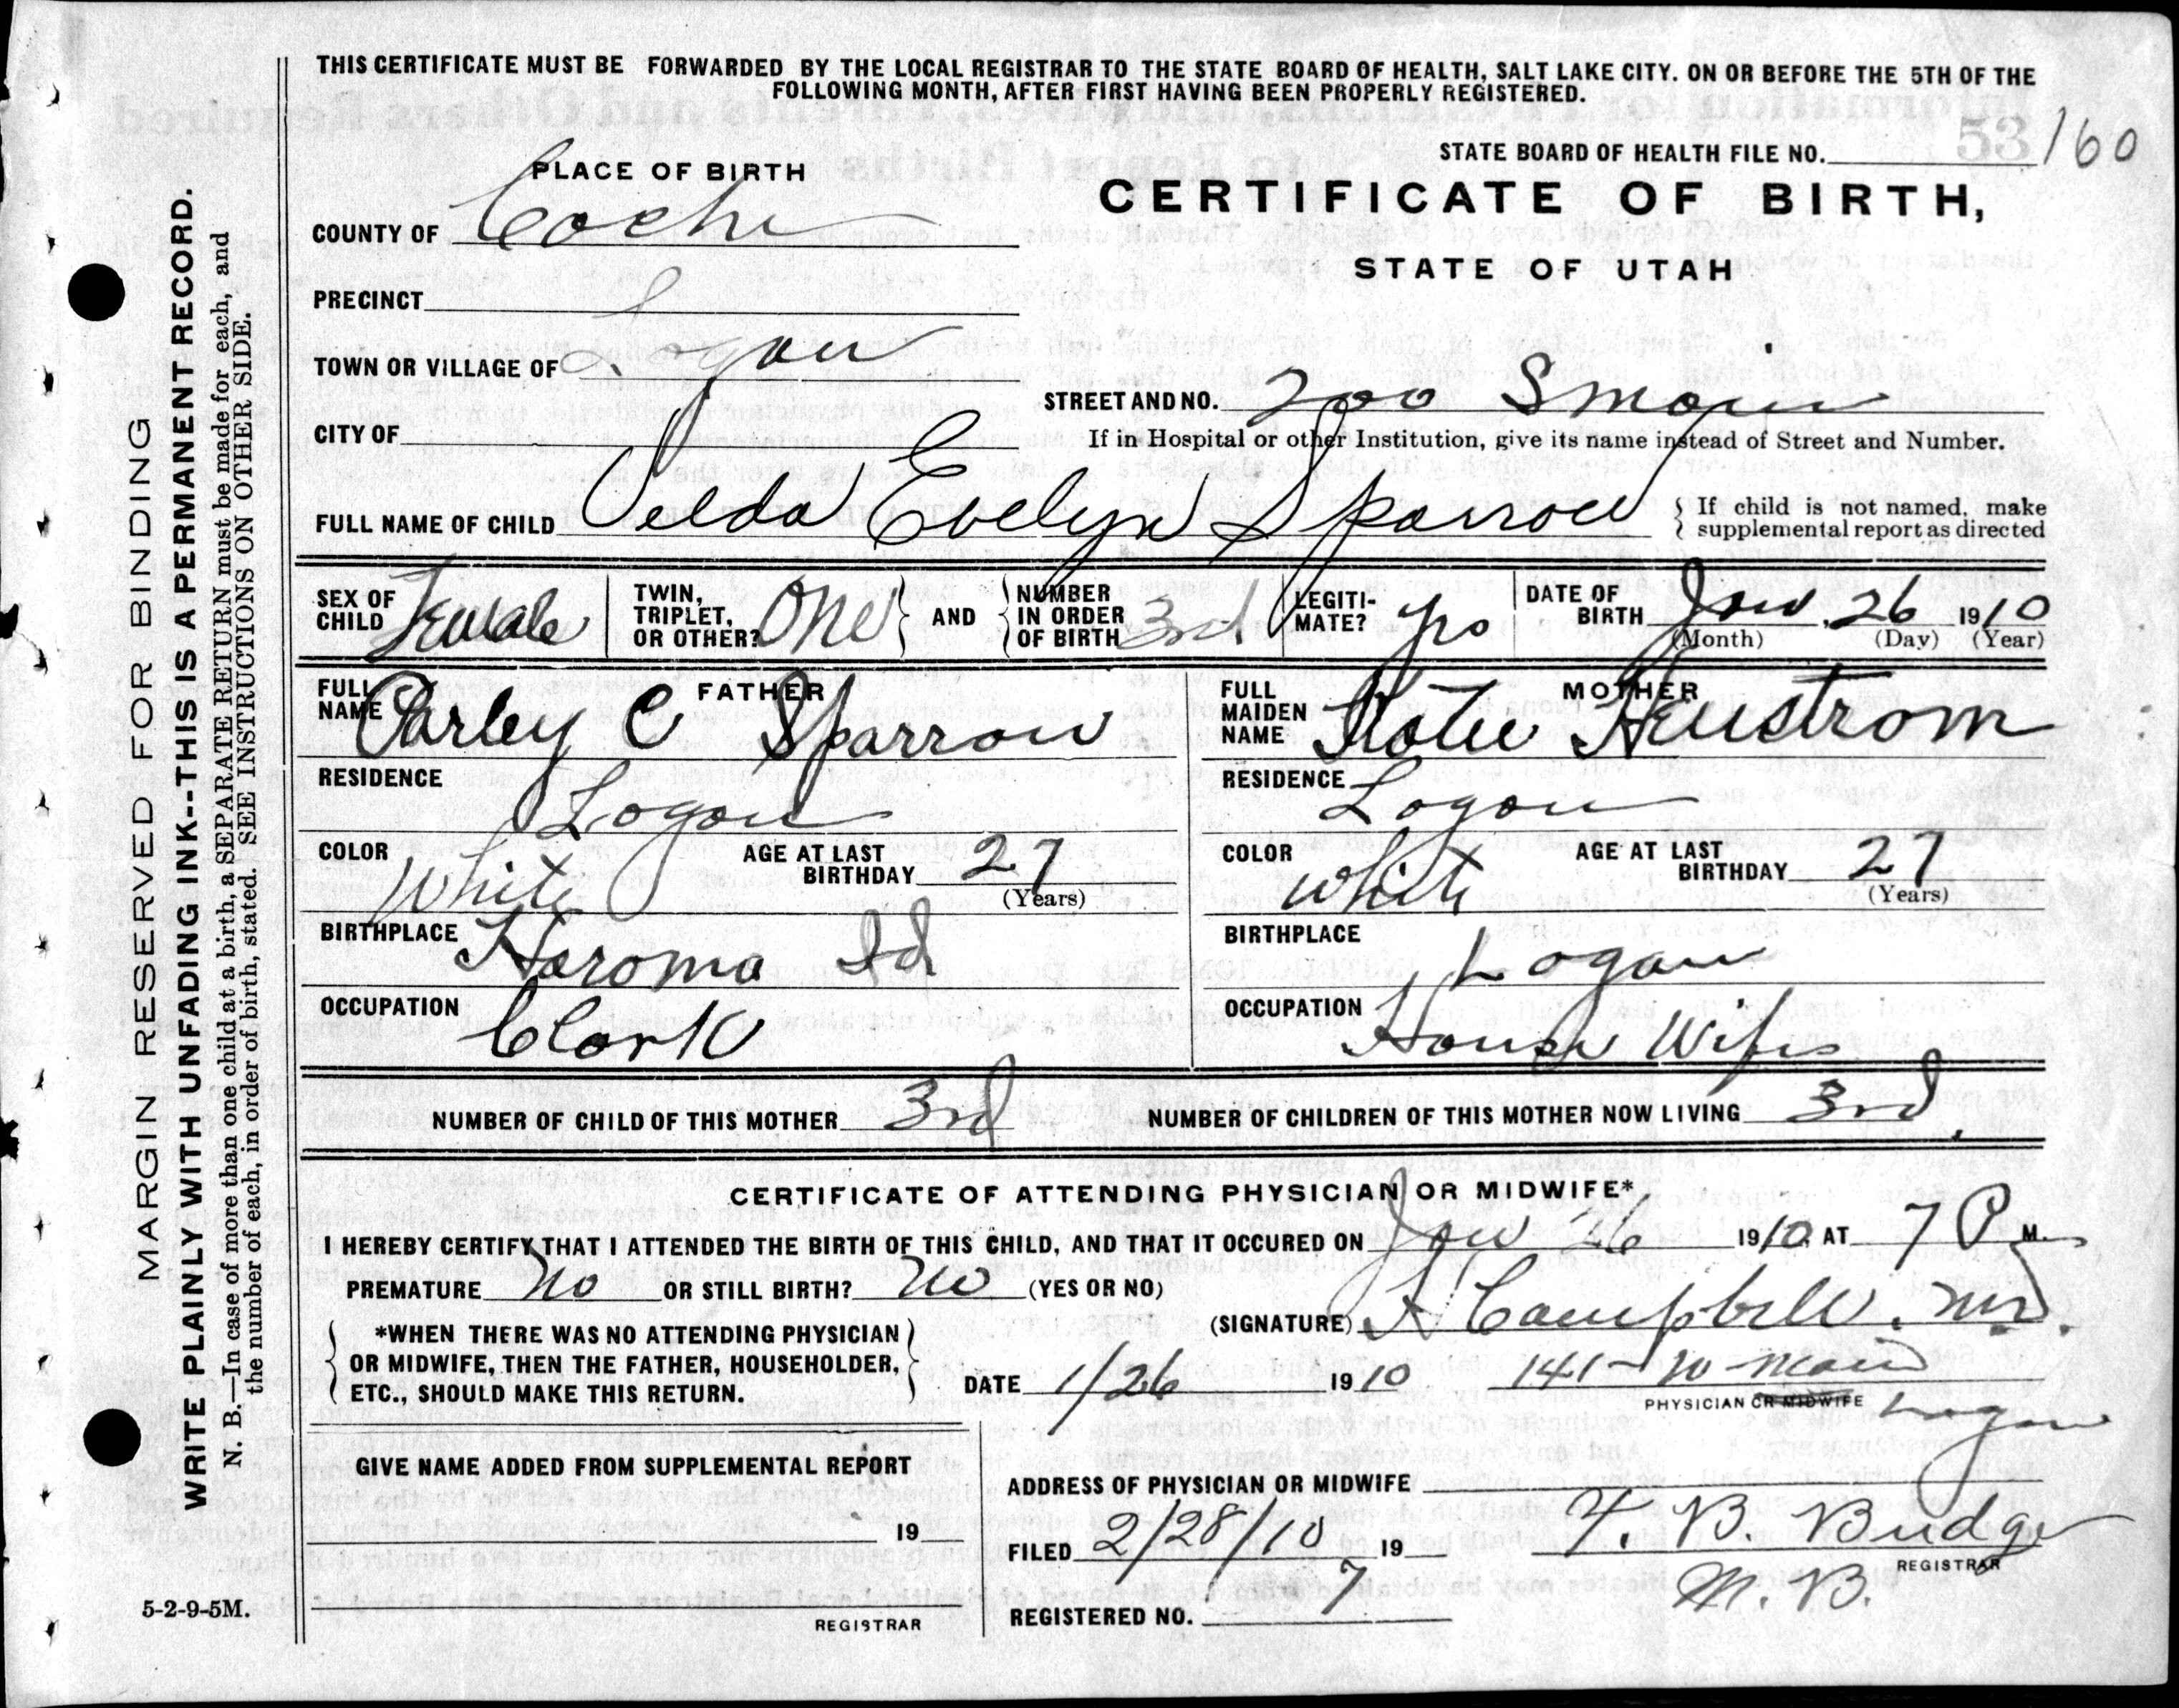 THIS CERTIFICATE MUST BE FORWARDED BY THE LOCAL REGISTRAR TO THE STATE BOARD OF HEALTH, SALT LAKE CITY. ON OR BEFORE THE 5TH OF THE
FOLLOWING MONTH, AFTER FIRST HAVING BEEN PROPERLY REGISTERED.
STATE BOARD OF HEALTH FILE NO. 53 160
PLACE OF BIRTH
CERTIFICATE OF BIRTH,
STATE OF UTAH
COUNTY OF Cache
PRECINCT
TOWN OR VILLAGE OF Logan
STREET AND NO. 200 S Main
CITY OF
If in Hospital or other Institution, give its name instead of Street and Number.
FULL NAME OF CHILD Velda Evelyn Sparrow { If child is not named, make
supplemental report as directed
SEX OF CHILD Female TWIN, TRIPLET, OR OTHER? One } AND { NUMBER IN ORDER OF BIRTH 3rd LEGITI-MATE? yes DATE OF BIRTH Jan. 26 1910
(Month) (Day) (Year)
FATHER
FULL NAME Parley C Sparrow
RESIDENCE Logan
COLOR White AGE AT LAST BIRTHDAY 27
(Years)
BIRTHPLACE Id
OCCUPATION Clark
MOTHER
FULL MAIDEN NAME Katie
RESIDENCE Logan
COLOR White AGE AT LAST BIRTHDAY 27
(Years)
BIRTHPLACE Logan
OCCUPATION House Wife
NUMBER OF CHILD OF THIS MOTHER 3rd NUMBER OF CHILDREN OF THIS MOTHER NOW LIVING 3rd
CERTIFICATE OF ATTENDING PHYSICIAN OR MIDWIFE*
I HEREBY CERTIFY THAT I ATTENDED THE BIRTH OF THIS CHILD, AND THAT IT OCCURED ON Jan 26 1910 AT 7 P M.
PREMATURE No OR STILL BIRTH? No (YES OR NO)
(SIGNATURE) Campbell. MD.
{ *WHEN THERE WAS NO ATTENDING PHYSICIAN
OR MIDWIFE, THEN THE FATHER, HOUSEHOLDER,
ETC., SHOULD MAKE THIS RETURN. }
DATE 1/26 1910 141 - W - Main
PHYSICIAN OR MIDWIFE Logan
GIVE NAME ADDED FROM SUPPLEMENTAL REPORT
19
REGISTRAR
ADDRESS OF PHYSICIAN OR MIDWIFE
FILED 2/28/10 19 B. Budge
REGISTRAR
M. B.
REGISTERED NO. 7
5-2-9-5M.
MARGIN RESERVED FOR BINDING
WRITE PLAINLY WITH UNFADING INK--THIS IS A PERMANENT RECORD.
N. B.—In case of more than one child at a birth, a SEPARATE RETURN must be made for each, and
the number of each, in order of birth, stated. SEE INSTRUCTIONS ON OTHER SIDE.